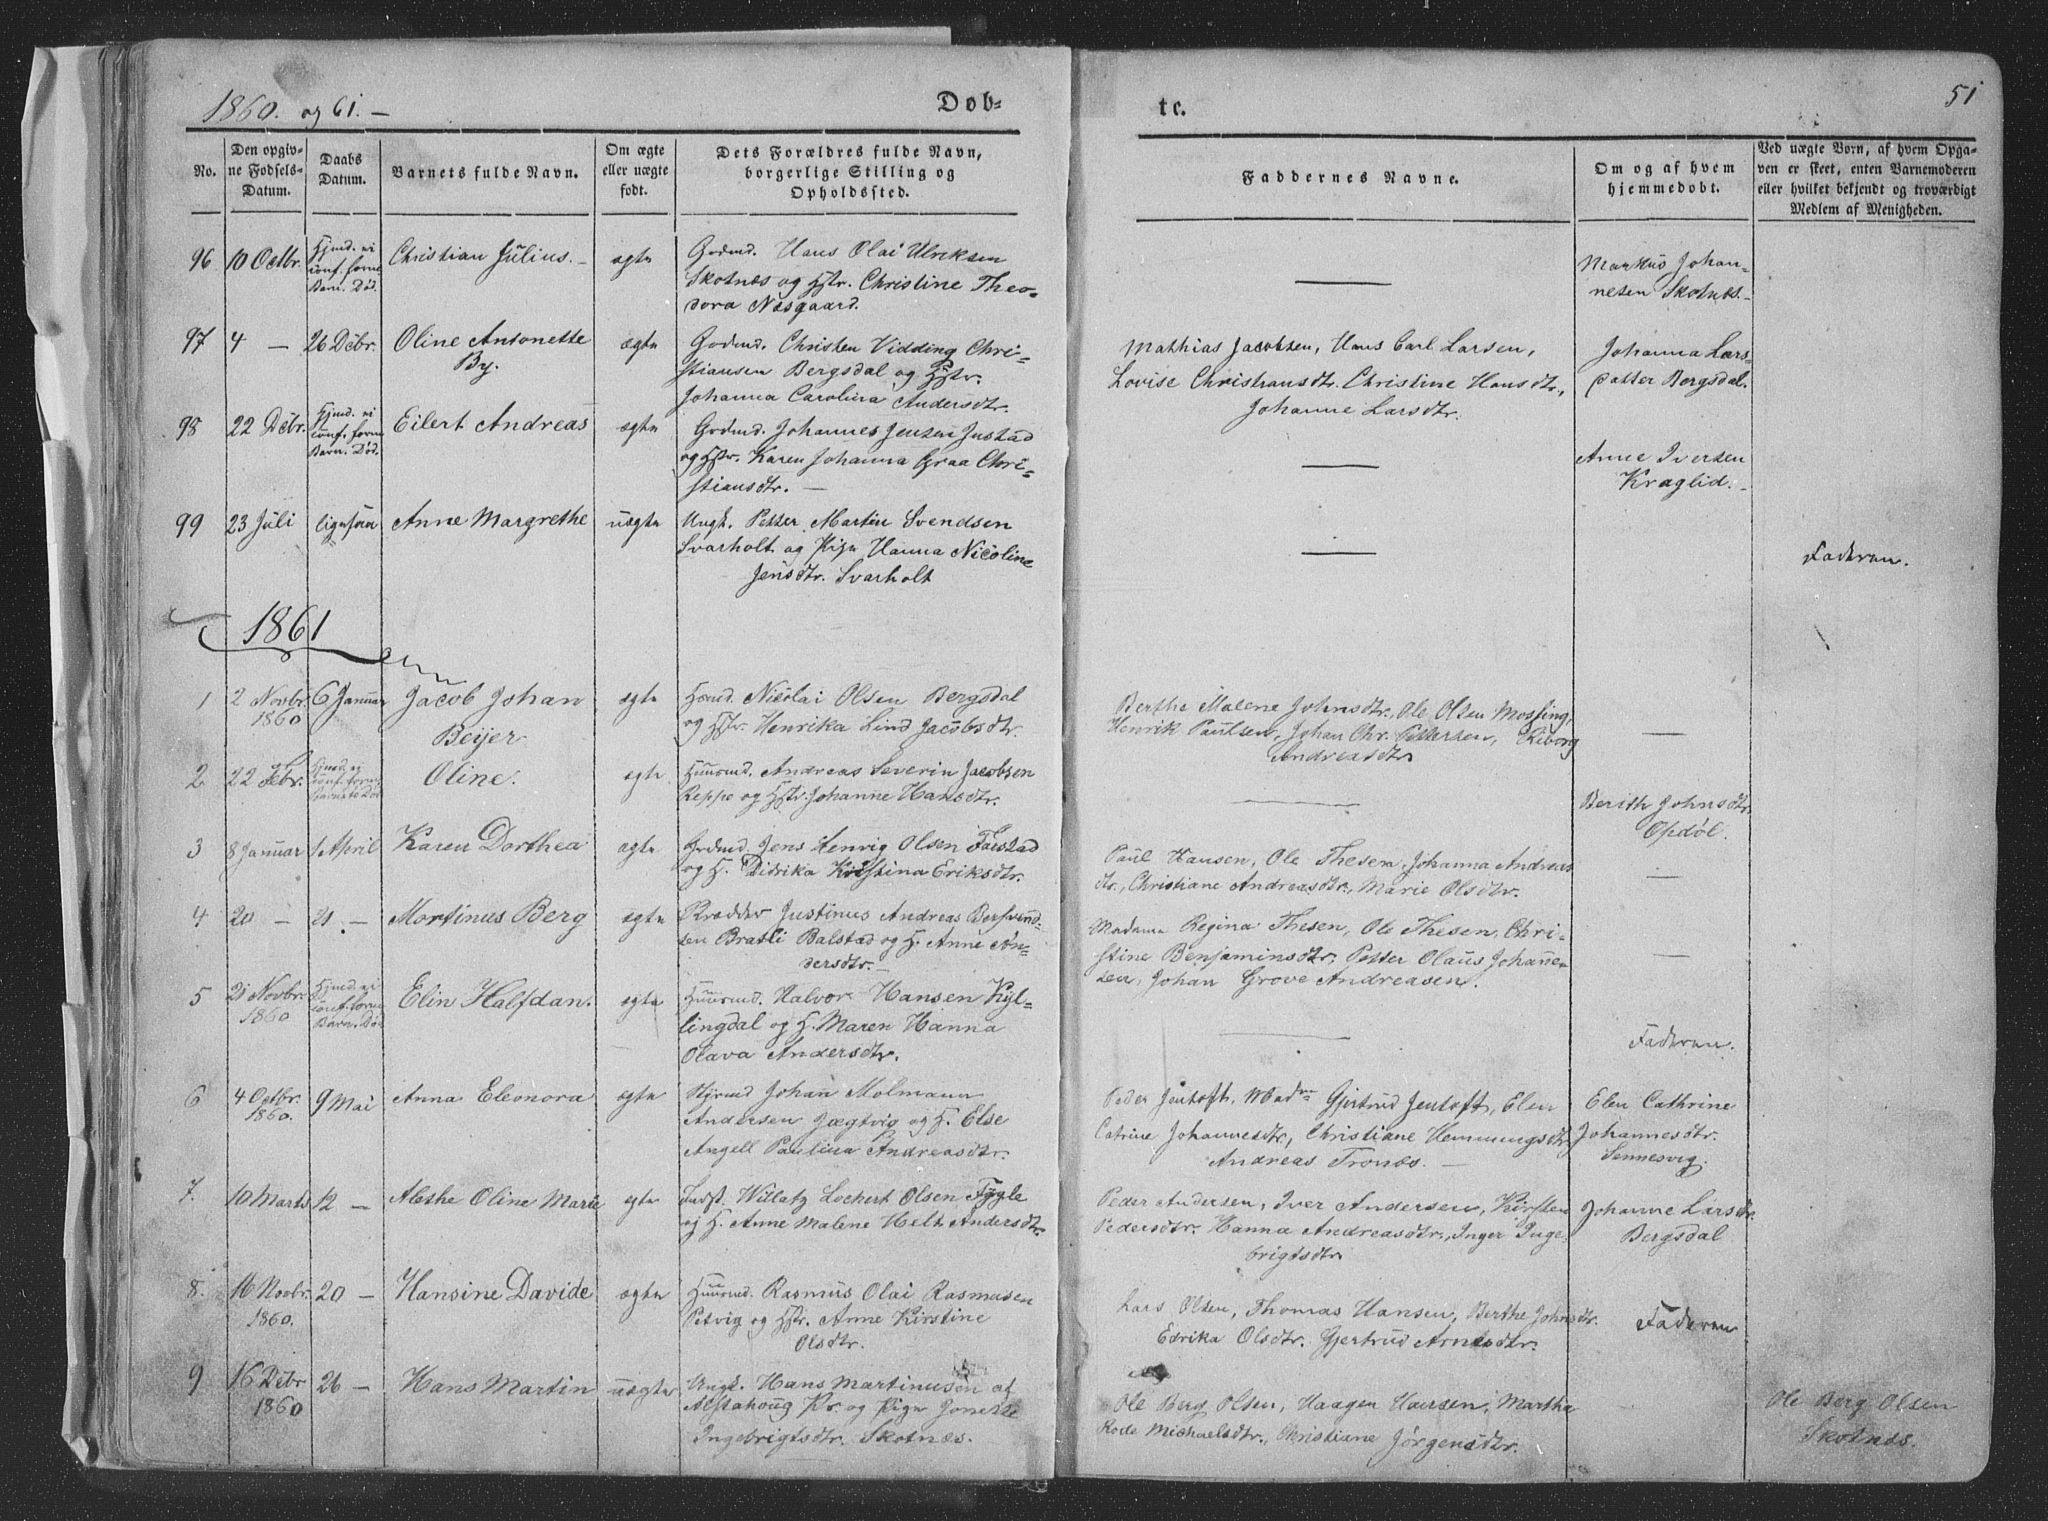 1860. og 61. –
Døb-
tc.
51
No.
Den opgiv-
ne Fødsels-
Datum.
Daabs
Datum.
Barnets fulde Navn.
Om ægte
eller uægte
født.
Dets Forældres fulde Navn,
borgerlige Stilling og
Opholdssted.
Faddernes Navne.
Om og af hvem
hjemmedøbt.
Ved uægte Børn, af hvem Opga-
ven er skeet, enten Barnemoderen
eller hvilket bekjendt og troværdigt
Medlem af Menigheden.
96 10 Octbr. Hjmd. ei
conf. form.
Barn. Død.
Christian Julius. – ægte
Gaardmd. Hans Olai Ulriksen
Skotnæs og Hstr. Christine Theo-
dora Næsgaard.
Markus Johan-
nesen Skotnæs. –
97 4 – 26 Debr. Oline Antonette
By.
ægte
Gaardmd. Christen Vidding Chri-
stiansen Bergsdal og Hstr.
Johanna Carolina Andersdtr.
Mathias Jacobsen, Hans Carl Larsen,
Lovise Christiansdtr. Christine Hansdtr.,
Johanne Larsdtr.
Johanna Lars-
datter Bergsdal.
98 22 Debr. Hjmd. ei
conf. form.
Barn. Død.
Eilert Andreas ægte
Gaardmd. Johannes Jensen Justad
og Hstr. Karen Johanna Graa Chri-
stiansdtr. –
Anne Iversen
Kraglid. –
99 23 Juli ligesaa Anne Margrethe uægte
Ungk. Petter Martin Svendsen
Svarholt og Pige Hanna Nicoline
Jensdtr. Svarholt
Faderen.
1861
1 2 Novbr.
1860
6 Januar Jacob Johan
Beyer
ægte
Huusmd. Nicolai Olsen Bergsdal
og Hstr. Henrika Lind Jacobsdtr.
Berthe Malene Johnsdtr., Ole Olsen Mossing,
Henrik Paulsen, Johan Chr. Pettersen, Ekiborg
Andreasdtr.
2 22 Febr. Hjmd. ei
conf. form.
Barnets Død
Oline. ægte
Huusmd. Andreas Severin Jacobsen
Reppe og Hstr. Johanne Hansdtr.
Berith Johnsdtr.
Opdøl.
3 8 Januar 1 April Karen Dorthea ægte
Gaardmd. Jens Henrig Olsen Farstad
og H. Didrika Kristina Eriksdtr.
Paul Hansen, Ole Thesen, Johanna Andreas
dtr., Christiane Andreasdtr., Marie Olsdtr.
4 20 – 21. – Mortinus Berg ægte
Kræmmer Justinus Andreas Bersvend-
sen Brasli Balstad og H. Anne Søn-
dersdtr. –
Madame Regina Thesen, Ole Thesen, Chri-
stine Benjaminsdtr., Petter Olaus Johanne-
sen, Johan Grove Andreasen.
5 21 Novbr.
1860
Hjmd. ei
conf. form.
Barn. Død
Elin Halfdan. ægte
Huusmd. Halvor Hansen Kyl-
lingdal og H. Maren Hanna
Olava Andersdtr.
Faderen.
6 4 Octbr.
1860.
9 Mai Anna Eleonora ægte
Hyrmd Johan Molmann
Andersen Jægtvig og H. Else
Angell Paulina Andreasdtr.
Peder Jentoft, Madme Gjertrud Jentoft, Elen
Catrine Johannesdtr., Christiane Hemmingsdtr.
Andreas Tronæs. –
Elen Cathrine
Johannesdtr.
Sennesvig.
7. 10 Marts 12 – Alethe Oline Marie ægte
Indst. Willatz Lockert Olsen Fygle
og H. Anne Malene Helt Andersdtr.
Peder Andersen, Iver Andersen, Kirsten
Pedersdtr. Hanna Andreasdtr., Inger Inge-
brigtsdtr.
Johanne Larsdtr.
Bergsdal
8. 16 Novbr.
1860.
20 – Hansine Davide ægte
Huusmd. Rasmus Olai Rasmusen
Petvig og Hstr. Anne Kirstine
Olsdtr.
Lars Olsen, Thomas Hansen, Berthe Johnsdtr.
Edrika Olsdtr. Gjertrud Arntsdtr.
Faderen
9 16 Debr
1860
26 – Hans Martin uægte
Ungk. Hans Martinusen af
Alstahoug Pr. og Pige Jonette
Ingebrigtsdtr. Skotnæs.
Ole Berg Olsen, Haagen Hansen, Martha
Rode Michaelsdtr., Christiane Jørgensdtr.
Ole Berg Olsen
Skotnæs.